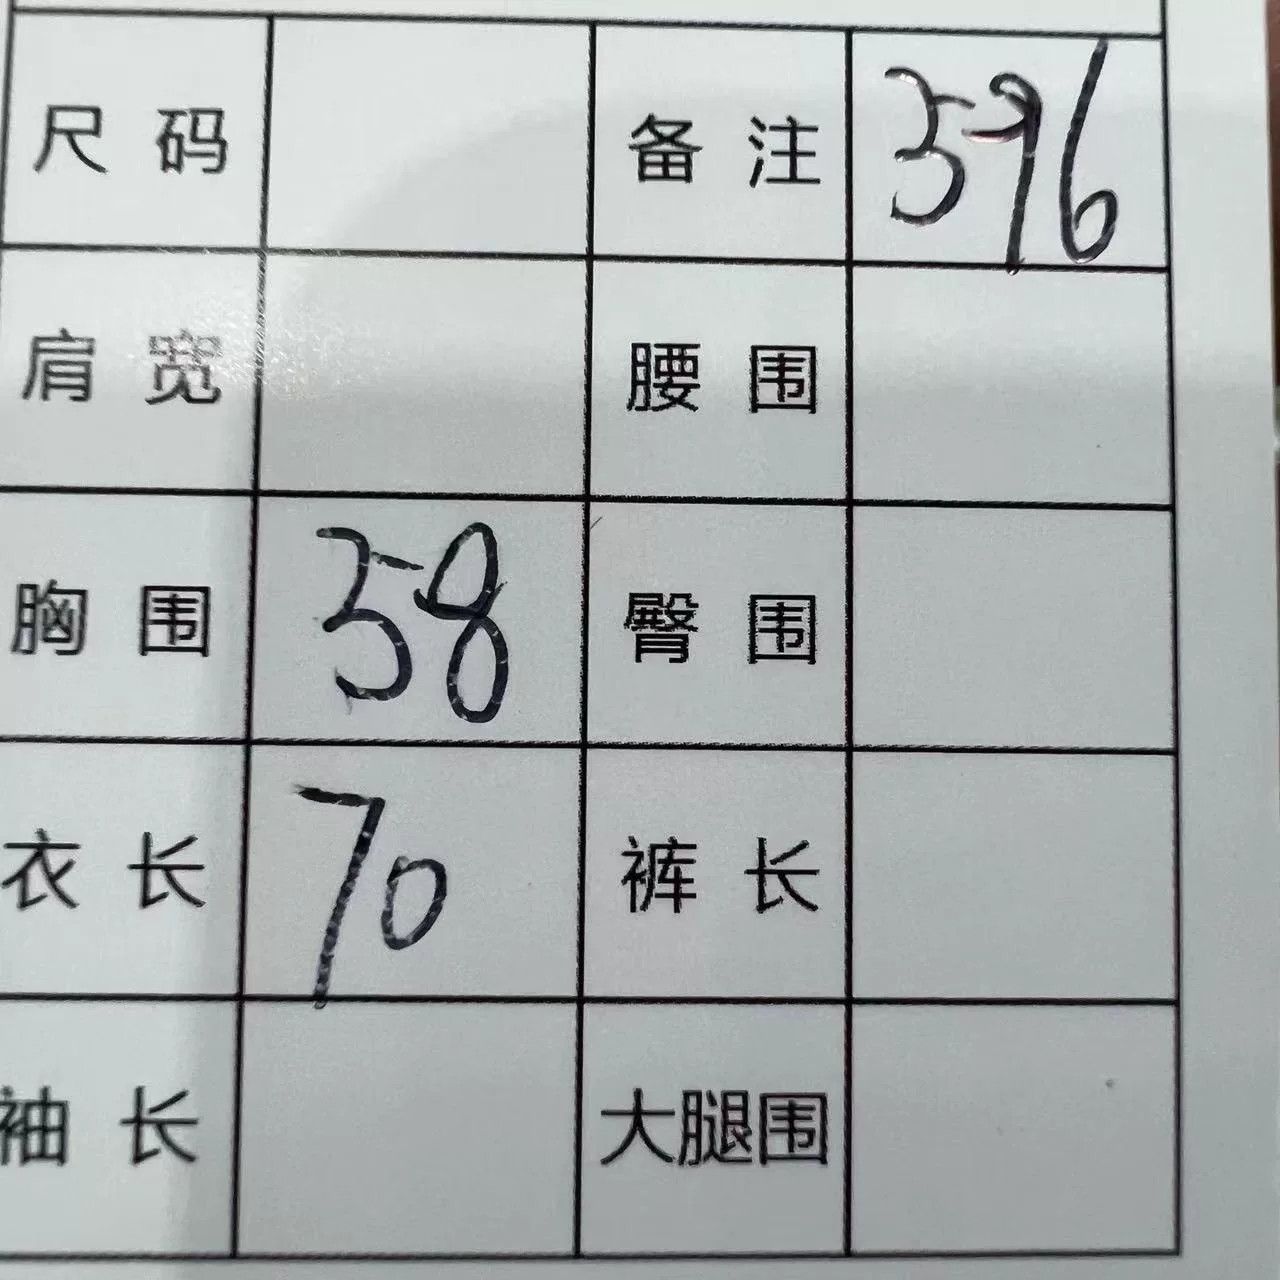 尺码 备注 596
肩宽 腰围
胸围 58 臀围
衣长 70 裤长
袖长 大腿围